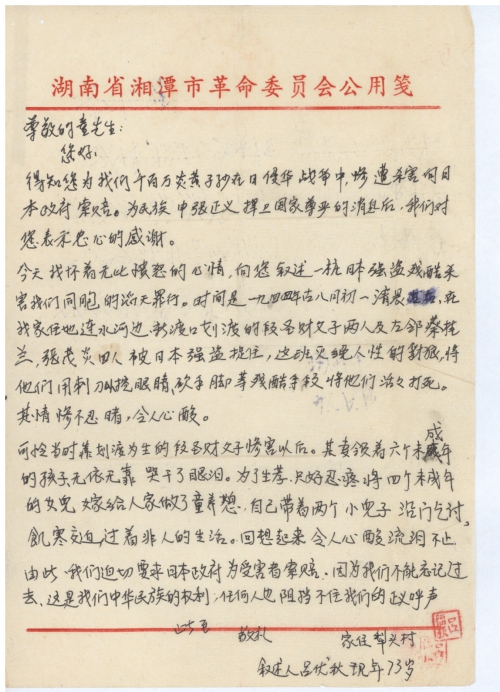 湖南省湘潭市革命委员会公用笺
尊敬的童先生:
您好
得知您为我们千百万炎黄子孙在日侵华战争中,惨遭杀害向日
本政府索赔。为民族申张正义 捍卫国家尊严的消息后,我们对
您表示忠心的感谢。
今天我怀着无比愤怒的心情,向您叙述一桩日本强盗残酷杀
害我们同胞的滔天罪行。时间是一九四四年古八月初一清晨 在
我家住地涟水河边,新渡口划渡的 父子两人及左邻
兰,张 炎四人被日本强盗捉住,这班灭绝人性的豺狼,将
他们用刺刀挖眼睛,砍手脚等残酷手段将他们活活打死。
其情惨不忍睹,令人心酸。
可怜当时靠划渡为生的 父子惨害以后。其妻领着六个未成年
的孩子无依无靠 哭干了眼泪。为了生存,只好忍痛将四个未成年
的女儿 嫁给人家做了童养媳,自己带着两个小儿子沿门乞讨,
飢寒交迫,过着非人的生活。回想起来令人心酸流泪不止.
由此,我们迫切要求日本政府为受害者索赔。因为我们不能忘记过
去,这是我们中华民族的权利,任何人也阻挡不住我们的正义呼声
此至 敬礼 家住 村
叙述人吕 秋 现年73岁